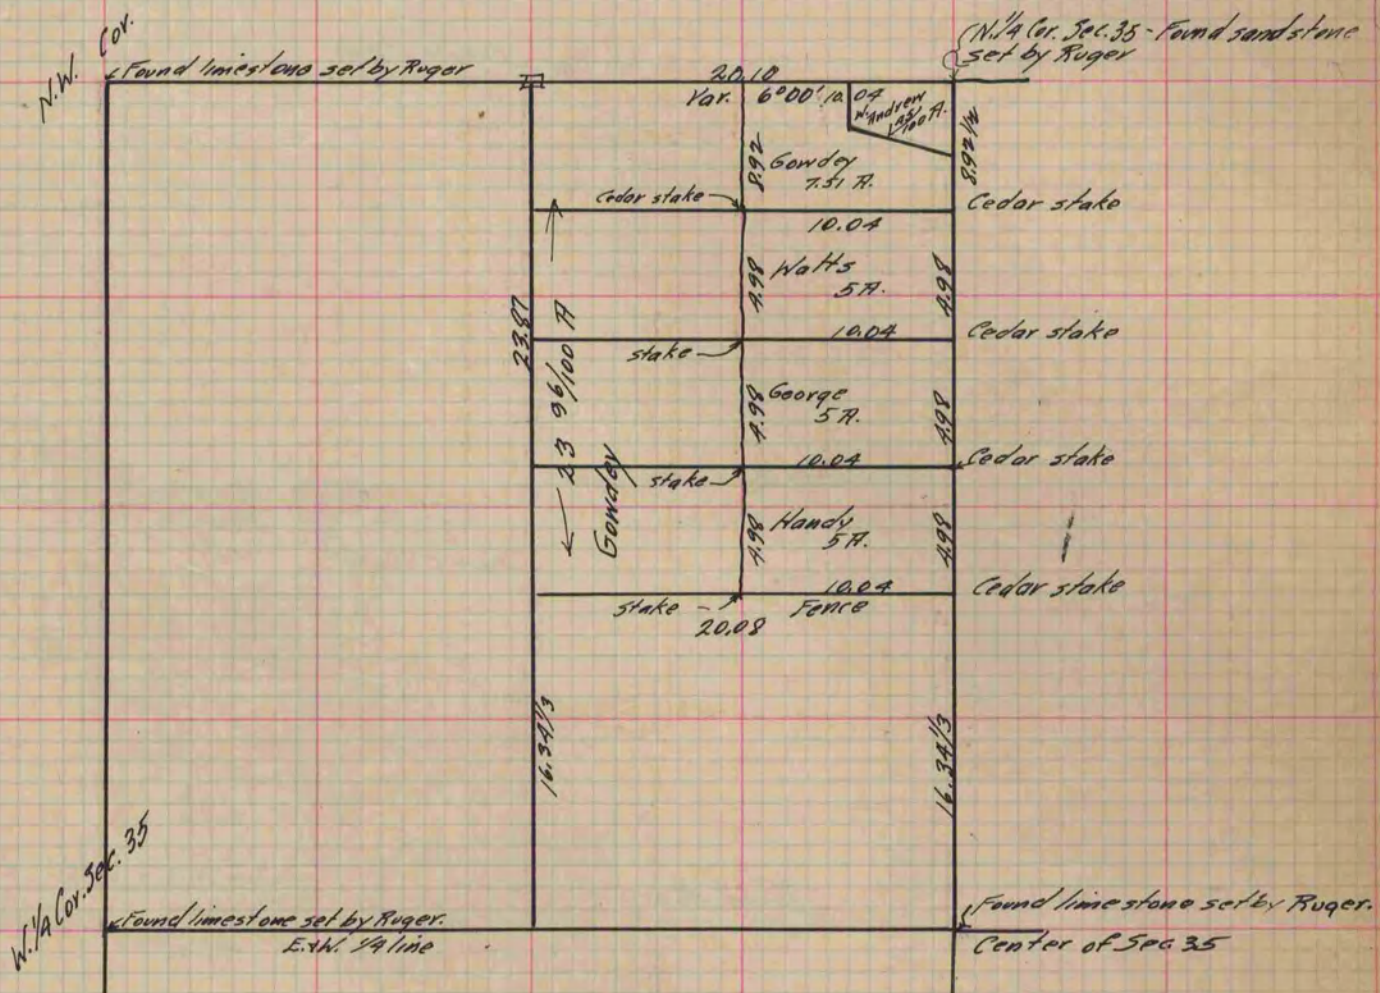 N.W. Cor.
Found limestone set by Ruger
20.10
(N.1/4 Cor. Sec. 35 - Found sandstone
set by Ruger
Var. 6°00' 10.04
W. Andrew
/100 A.
8.92
Gowdey
7.51 A.
8.92 1/2
Cedar stake
Cedar stake
10.04
4.98
Watts
5 A.
4.98
23.87
10.04
Cedar stake
stake
23 96/100 A
Gowdey
4.98
George
5 A.
4.98
10.04
Cedar stake
stake
4.98
Handy
5 A.
4.98
10.04
Cedar stake
stake
Fence
20.08
16.34 1/3
16.34 1/3
W. 1/4 Cor. Sec. 35
Found limestone set by Ruger.
E.&W. 1/4 line
Found limestone set by Ruger.
Center of Sec 35